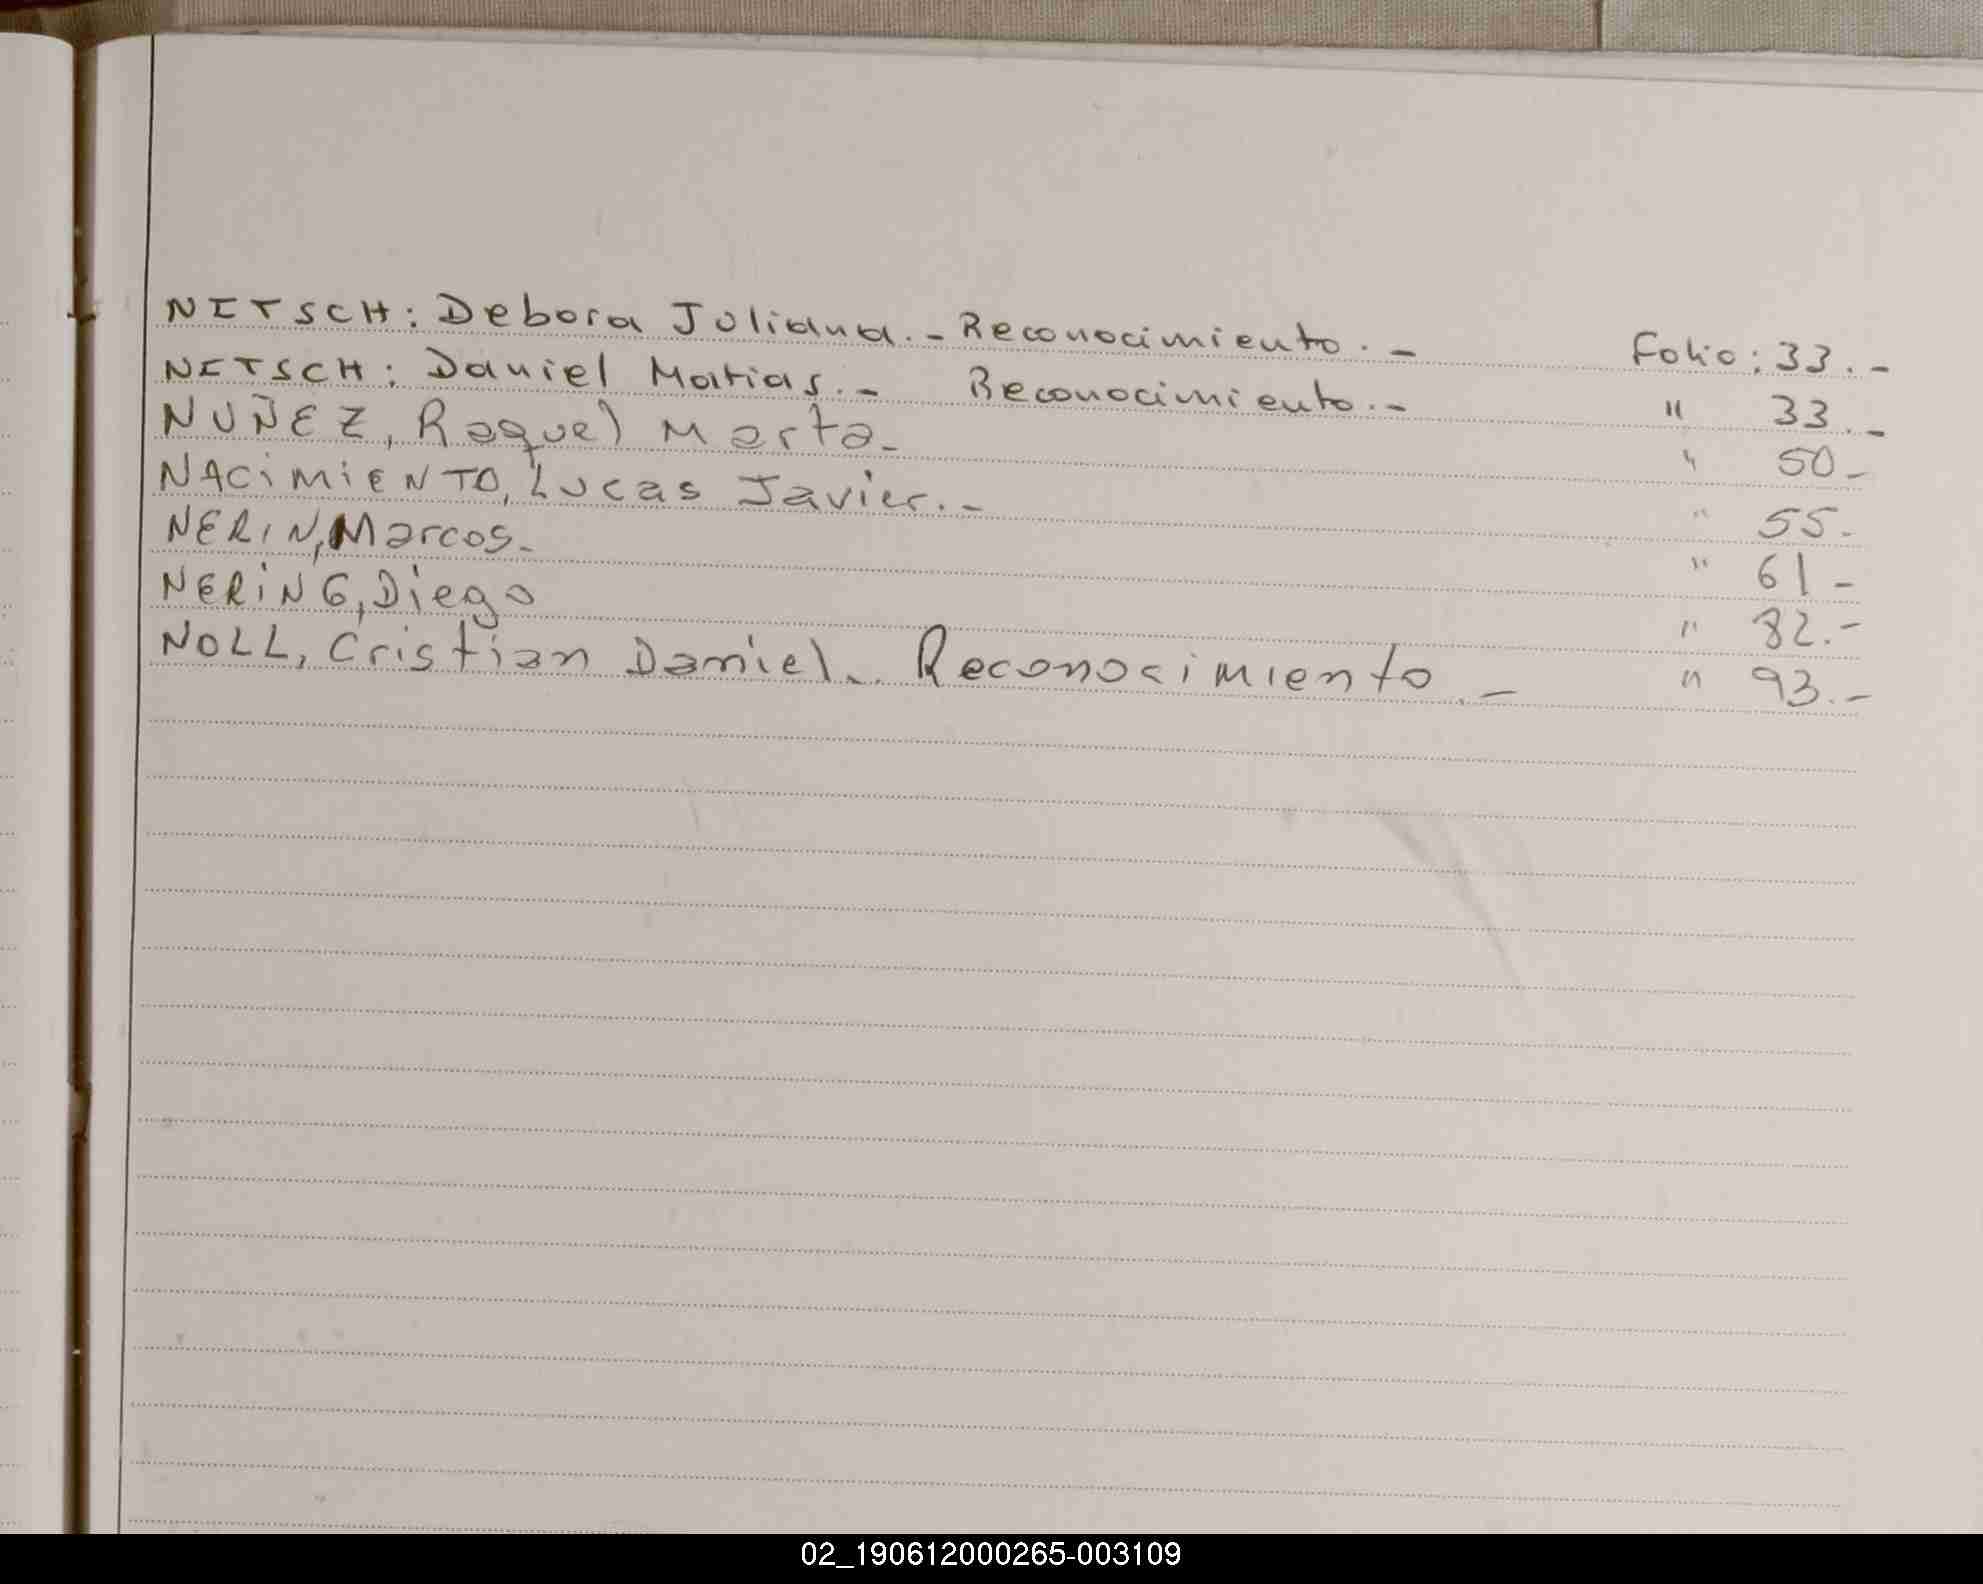 NITSCH: Debora Juliana.- Reconocimiento.- Folio: 33.-
NITSCH: Daniel Matias.- Reconocimiento.- " 33.-
NUÑEZ, Raquel Marta- " 50-
NACIMIENTO, Lucas Javier.- " 55-
NERIN, Marcos- " 61-
NERING, Diego " 82.-
NOLL, Cristian Daniel.- Reconocimiento.- " 93.-
02_190612000265-003109